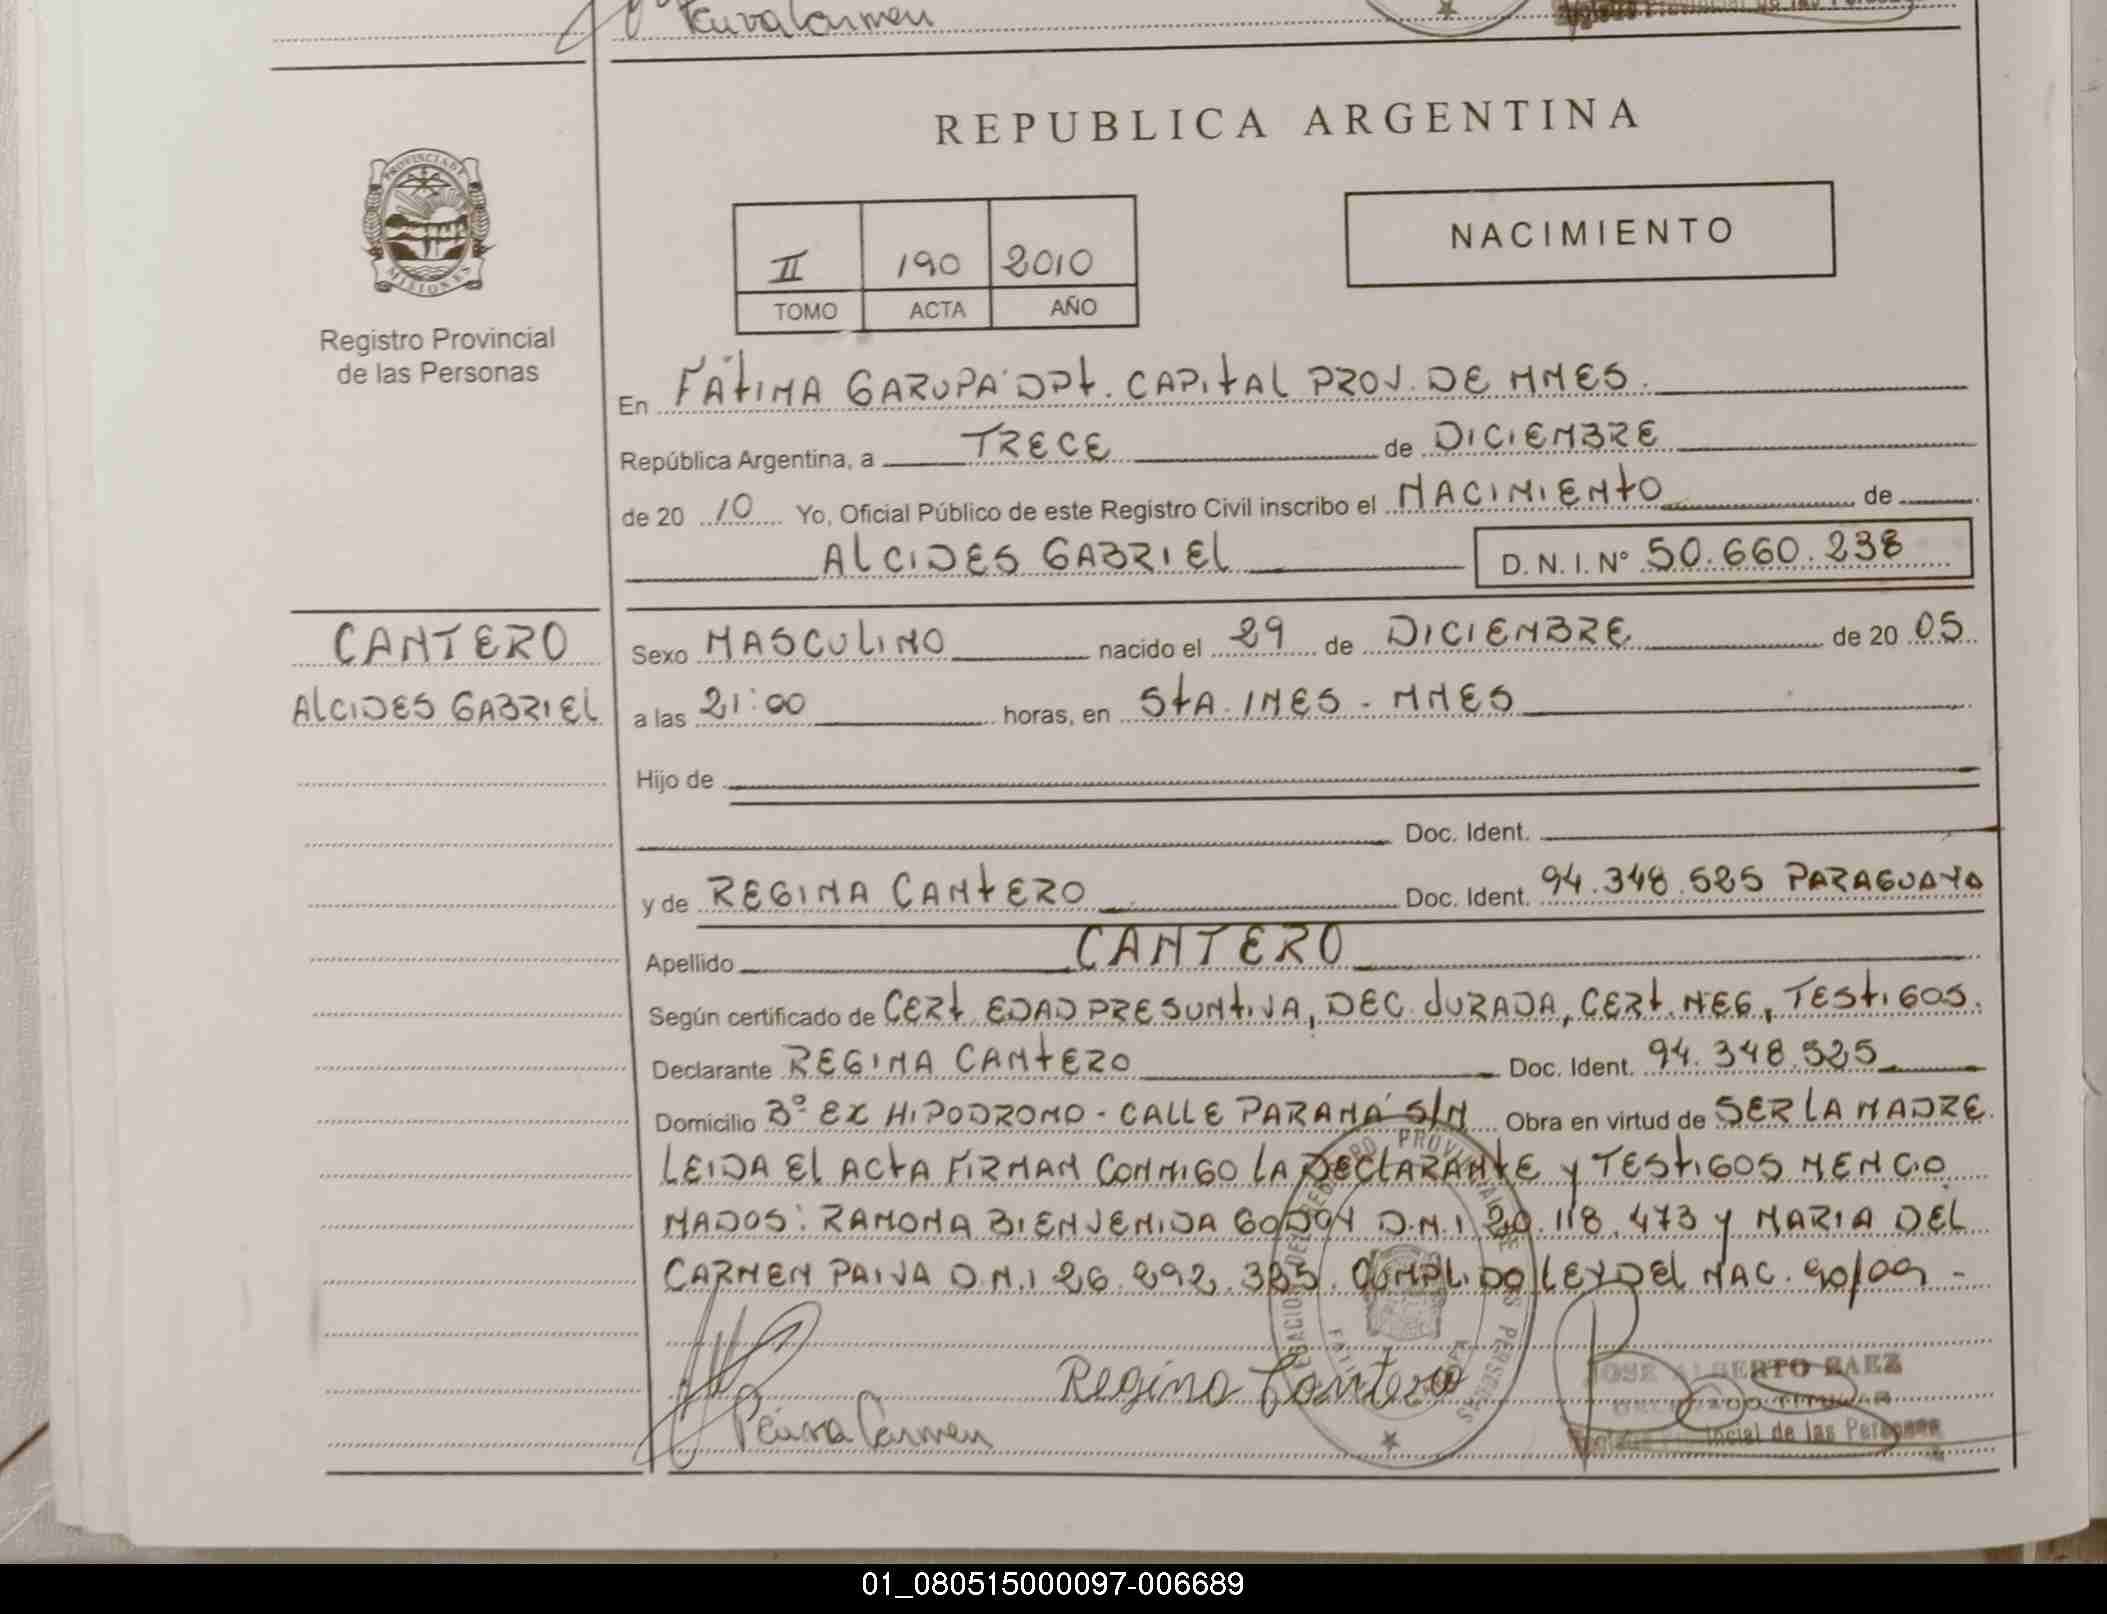 Paiva Carmen
REPUBLICA ARGENTINA
PROVINCIA DE
MISIONES
Registro Provincial
de las Personas
NACIMIENTO
II 190 2010
TOMO ACTA AÑO
En FÁTIMA GARUPA DPT. CAPITAL PROV. DE MNES.
República Argentina, a TRECE de DICIEMBRE
de 20 10 Yo, Oficial Público de este Registro Civil inscribo el NACIMIENTO de
ALCIDES GABRIEL D. N. I. N° 50.660.238
CANTERO
ALCIDES GABRIEL
Sexo MASCULINO nacido el 29 de DICIEMBRE de 20 05
a las 21:00 horas, en STA. INES - MNES
Hijo de
Doc. Ident.
y de REGINA CANTERO Doc. Ident. 94.348.525 PARAGUAYA
Apellido CANTERO
Según certificado de CERT. EDAD PRESUNTIVA, DEC. JURADA, CERT. NEG, TESTIGOS.
Declarante REGINA CANTERO Doc. Ident. 94.348.525
Domicilio Bº EX HIPODROMO - CALLE PARANÁ S/N Obra en virtud de SER LA MADRE.
LEIDA EL ACTA FIRMAN CONMIGO LA DECLARANTE Y TESTIGOS MENCIO
NADOS: RAMONA BIENVENIDA GODOY D.N.I 20.118.473 Y MARIA DEL
CARMEN PAIVA D.N.I 26.292.385. CUMPLIDO LEY DEL NAC. 90/09 -
Regina Cantero
Paiva Carmen
JOSE ALBERTO BAEZ
DELEGADO TITULAR
Provincial de las Personas
01_080515000097-006689